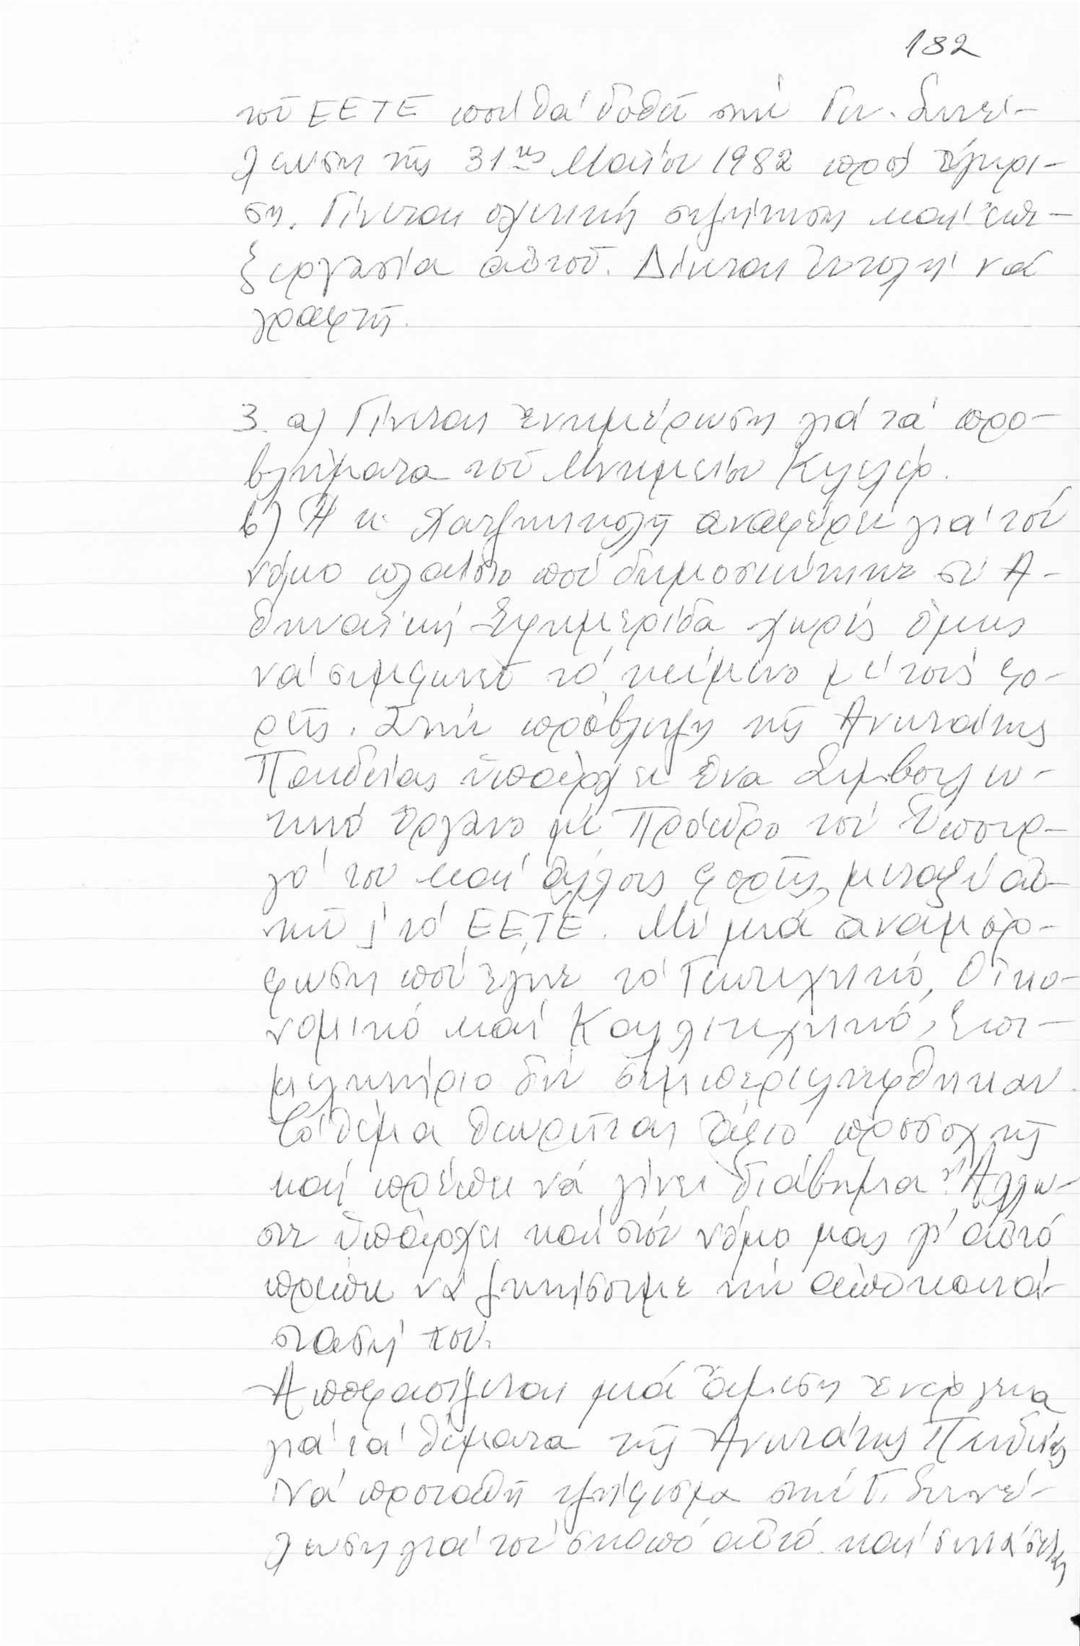 182
τοῦ ΕΕΤΕ ποὺ θὰ δοθεῖ στὴν Γεν. Συνέ-
λευση τῆς 31ης Μαΐου 1982 πρὸς ἔγκρι-
ση. Γίνεται σχετικὴ συζήτηση καὶ ἐπε-
ξεργασία αὐτοῦ. Δίνεται ἐντολὴ νὰ
γραφτῆ.
3. α) Γίνεται ἐνημέρωση γιὰ τὰ προ-
βλήματα τοῦ Μνημείου Κιλελέρ.
β) Ἡ κ. Χατζηνικολῆ ἀναφέρει γιὰ τὸν
νόμο πλαίσιο ποὺ δημοσιεύτηκε σὲ Ἀ-
θηναϊκὴ Ἐφημερίδα χωρὶς ὅμως
νὰ συμφωνεῖ τὸ κείμενο μὲ τοὺς φο-
ρεῖς. Στὴν πρόβλεψη τῆς Ἀνωτάτης
Παιδείας ὑπάρχει ἕνα Συμβουλευ-
τικὸ ὄργανο μὲ Πρόεδρο τὸν Ὑπουρ-
γό του καὶ ἄλλους φορεῖς, μεταξὺ αὐ-
τῶν καὶ τὸ ΕΕΤΕ. Μὲ μιὰ ἀναμόρ-
φωση ποὺ ἔγινε τὸ Γεωτεχνικό, Οἰκο-
νομικὸ καὶ Καλλιτεχνικό, Ἐπι-
μελητήριο δὲν συμπεριλήφθηκαν.
Τὸ θέμα θεωρεῖται ἄξιο προσοχῆς
καὶ πρέπει νὰ γίνει διάβημα. Ἄλλω-
στε ὑπάρχει καὶ στὸν νόμο μας γι' αὐτὸ
πρέπει νὰ ζητήσουμε τὴν ἀποκατά-
στασή του.
Ἀποφασίζεται μιὰ ἄμεση ἐνέργεια
γιὰ τὰ θέματα τῆς Ἀνωτάτης Παιδείας
Νὰ προταθῆ ψήφισμα στὴν Γ. Συνέ-
λευση γιὰ τὸν σκοπὸ αὐτὸ καὶ